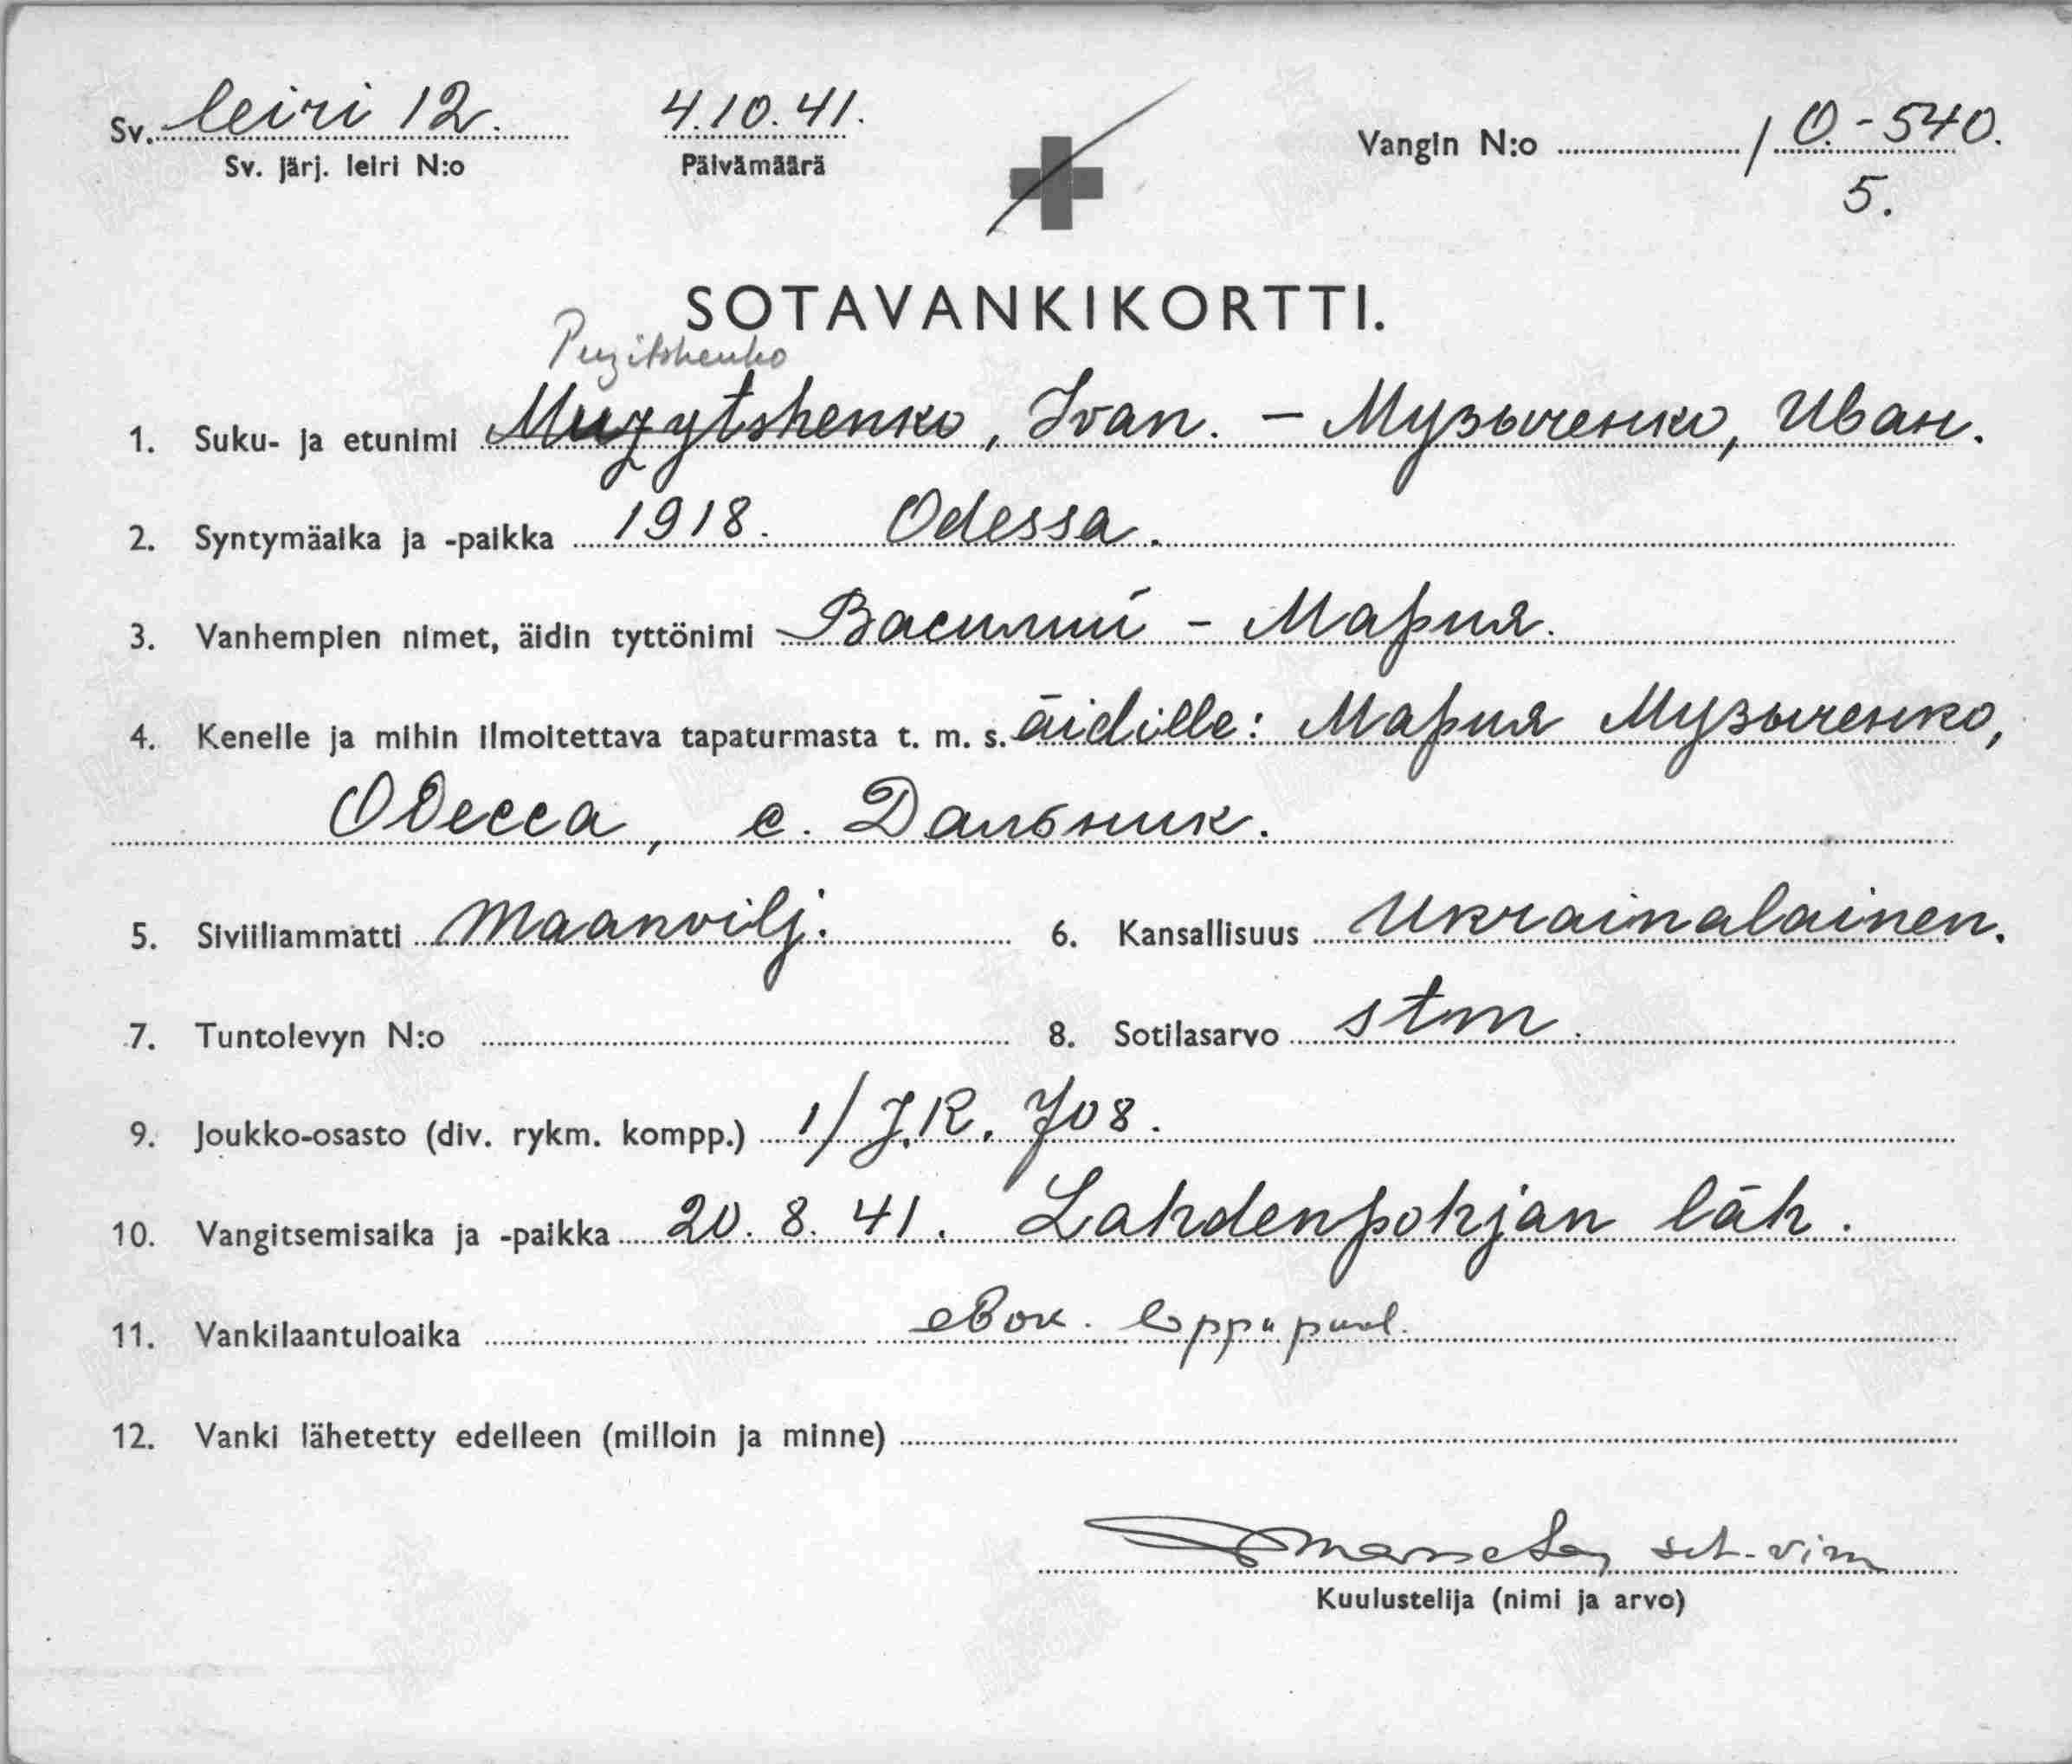 Sv. leiri 12. 4.10.41. Vangin N:o / O.-540.
Sv. järj. leiri N:o Päivämäärä 5.
SOTAVANKIKORTTI.
Puzitshenko
1. Suku- ja etunimi Muzytshenko, Ivan. – Музыченко, Иван.
2. Syntymäaika ja -paikka 1918. Odessa.
3. Vanhempien nimet, äidin tyttönimi Василий – Мария.
4. Kenelle ja mihin ilmoitettava tapaturmasta t. m. s. äidille: Мария Музыченко,
Одесса, с. Дальник.
5. Siviiliammatti maanvilj. 6. Kansallisuus Ukrainalainen.
7. Tuntolevyn N:o 8. Sotilasarvo stm.
9. Joukko-osasto (div. rykm. kompp.) 1/J.R. 708.
10. Vangitsemisaika ja -paikka 20.8.41. Lahdenpohjan läh.
11. Vankilaantuloaika elok. loppupuol.
12. Vanki lähetetty edelleen (milloin ja minne)
sot.virm
Kuulustelija (nimi ja arvo)